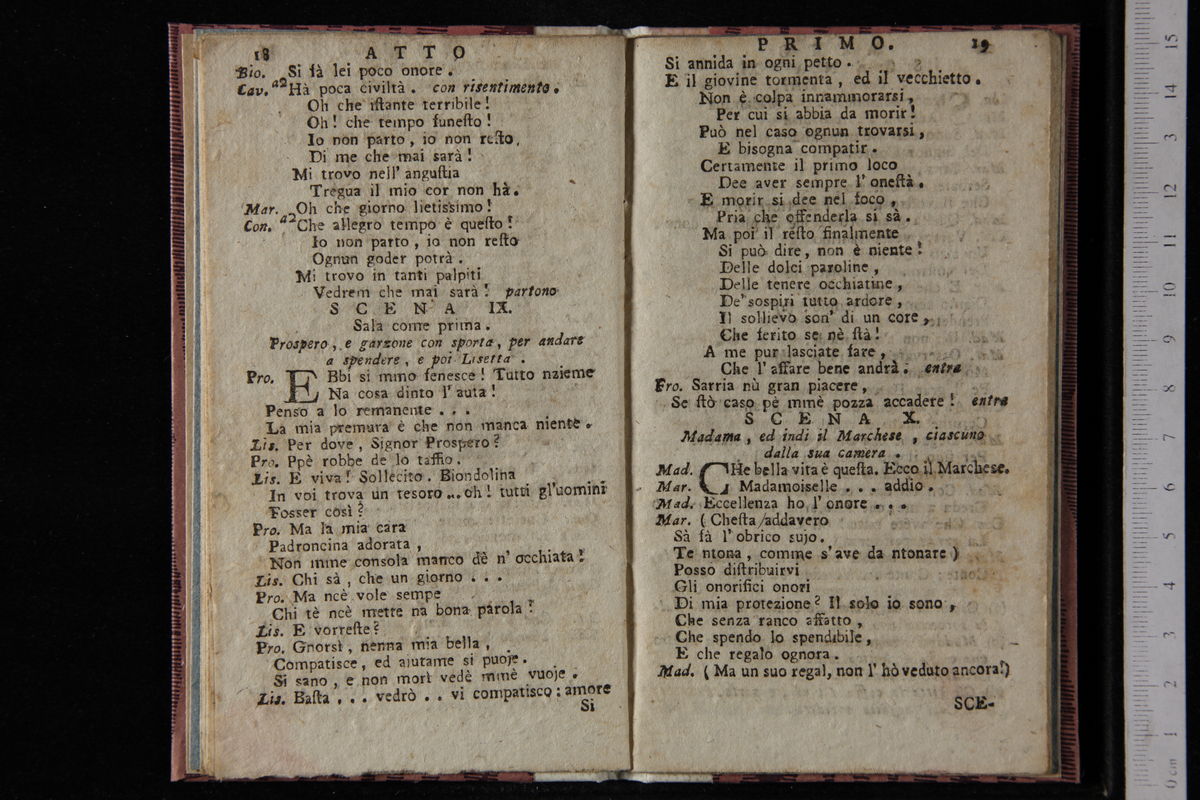 18 ATTO
Bio. Si fà lei poco onore.
Cav. a2 Hà poca civiltà. con risentimento.
Oh che iſtante terribile!
Oh! che tempo funeſto!
Io non parto, io non reſto,
Di me che mai sarà!
Mi trovo nell' anguſtia
Tregua il mio cor non hà.
Mar. Oh che giorno lietissimo!
Con. a2 Che allegro tempo è queſto!
Io non parto, io non reſto
Ognun goder potrà.
Mi trovo in tanti palpiti
Vedrem che mai sarà! partono
SCENA IX.
Sala come prima.
Prospero, e garzone con sporta, per andare
a spendere, e poi Lisetta.
Pro. EBbi si mmo fenesce! Tutto nzieme
Na cosa dinto l'auta!
Penso a lo remanente . . .
La mia premura è che non manca niente.
Lis. Per dove, Signor Prospero?
Pro. Ppè robbe de lo taffio.
Lis. E viva! Sollecito. Biondolina
In voi trova un tesoro... oh! tutti gl'uomini
Fosser così?
Pro. Ma la mia cara
Padroncina adorata,
Non mme consola manco dè n' occhiata!
Lis. Chi sà, che un giorno . . .
Pro. Ma ncè vole sempe
Chi tè ncè mette na bona parola!
Lis. E vorreſte?
Pro. Gnorsì, nenna mia bella,
Compatisce, ed aiutame si puoje.
Si sano, e non morì vedè mmè vuoje.
Lis. Baſta . . . vedrò . . vi compatisco: amore
Si
PRIMO. 19
Si annida in ogni petto.
E il giovine tormenta, ed il vecchietto.
Non è colpa innammorarsi,
Per cui si abbia da morir!
Può nel caso ognun trovarsi,
E bisogna compatir.
Certamente il primo loco
Dee aver sempre l' oneſtà.
E morir si dee nel foco,
Pria che offenderla si sà.
Ma poi il reſto finalmente
Si può dire, non è niente!
Delle dolci paroline,
Delle tenere occhiatine,
De' sospiri tutto ardore,
Il sollievo son' di un core,
Che ferito se nè ſtà!
A me pur lasciate fare,
Che l' affare bene andrà. entra
Pro. Sarria nù gran piacere,
Se ſtò caso pè mmè pozza accadere! entra
SCENA X.
Madama, ed indi il Marchese, ciascuno
dalla sua camera.
Mad. CHe bella vita è queſta. Ecco il Marchese.
Mar. Madamoiselle . . . addio.
Mad. Eccellenza ho l' onore . . .
Mar. (Cheſta addavero
Sà fà l' obrico sujo.
Te ntona, comme s'ave da ntonare)
Posso diſtribuirvi
Gli onorifici onori
Di mia protezione? Il solo io sono,
Che senza ranco affatto,
Che spendo lo spendibile,
E che regalo ognora.
Mad. (Ma un suo regal, non l' hò veduto ancora!)
SCE-
0 cm 1 2 3 4 5 6 7 8 9 10 11 12 3 14 15